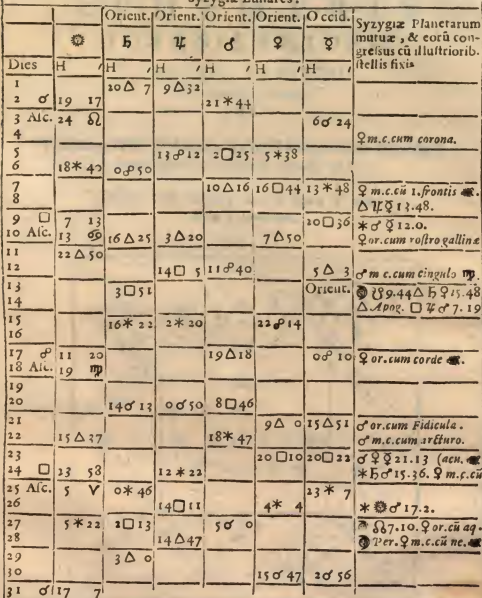 Syzygiæ Lunares.
Orient. Orient. Orient. Orient. Occid. Syzygiæ Planetarum
☉ ♄ ♃ ♂ ♀ ☿ mutuæ, & eorū con-
gressus cū illustriorib.
Dies H ′ H ′ H ′ H ′ H ′ H ′ stellis fixis
1 20△ 7 9△32
2 ☌ 19 17 21*44
3 Asc. 24 ♌ 6☌24
4 ♀ m.c.cum corona.
5 13☍12 2□25 5*38
6 18*40 0☍50
7 10△16 16□44 13*48 ♀ m.c.cū 1.frontis
8 △♃☿13.48.
9 □ 7 13 20□36 *♂☿12.0.
10 Asc. 13 ♋ 16△25 3△20 7△50 ♀ or.cum rostro gallinæ
11 22△50
12 14□ 5 11☍40 5△ 3 ♂ m c.cum cingulo ♍.
13 3□51 Orient. ☋9.44△♄♀15.48
14 △Apog. □♃♂7.19
15 16*22 2*20 22☍14
16
17 ☍ 11 20 19△18 0☍10 ♀ or.cum corde
18 Asc. 19 ♍
19
20 14☌13 0☌50 8□46
21 9△ 0 15△51 ♂ or.cum Fidicula.
22 15△37 18*47 ♂ m.c.cum arcturo.
23 20□10 20□22 ☌♀☿21.13 (acu.
24 □ 23 58 12*22 *♄♂15.36. ♀ m.c.cū
25 Asc. 5 ♈ 0*46 23* 7
26 14□11 4* 4 *☉♂17.2.
27 5*22 2□13 5☌ 0 ☊7.10.♀ or.cū aq.
28 14△47 Per.♀ m.c.cū ne.
29 3△ 0
30 15☌47 2☌56
31 ☌ 17 7